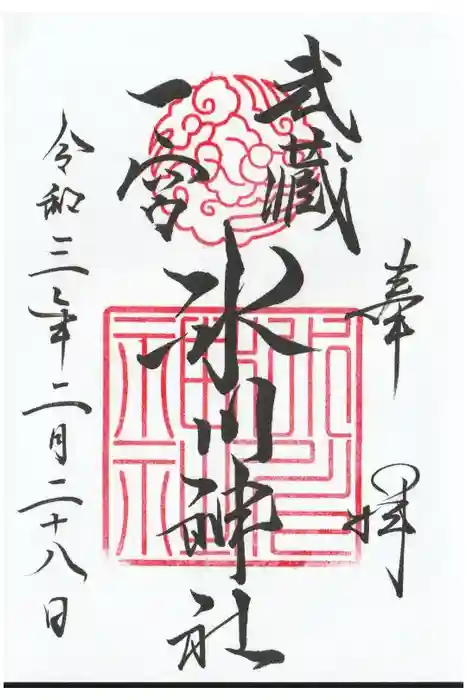 奉拝
武蔵
一宮
氷川神社
令和三年二月二十八日